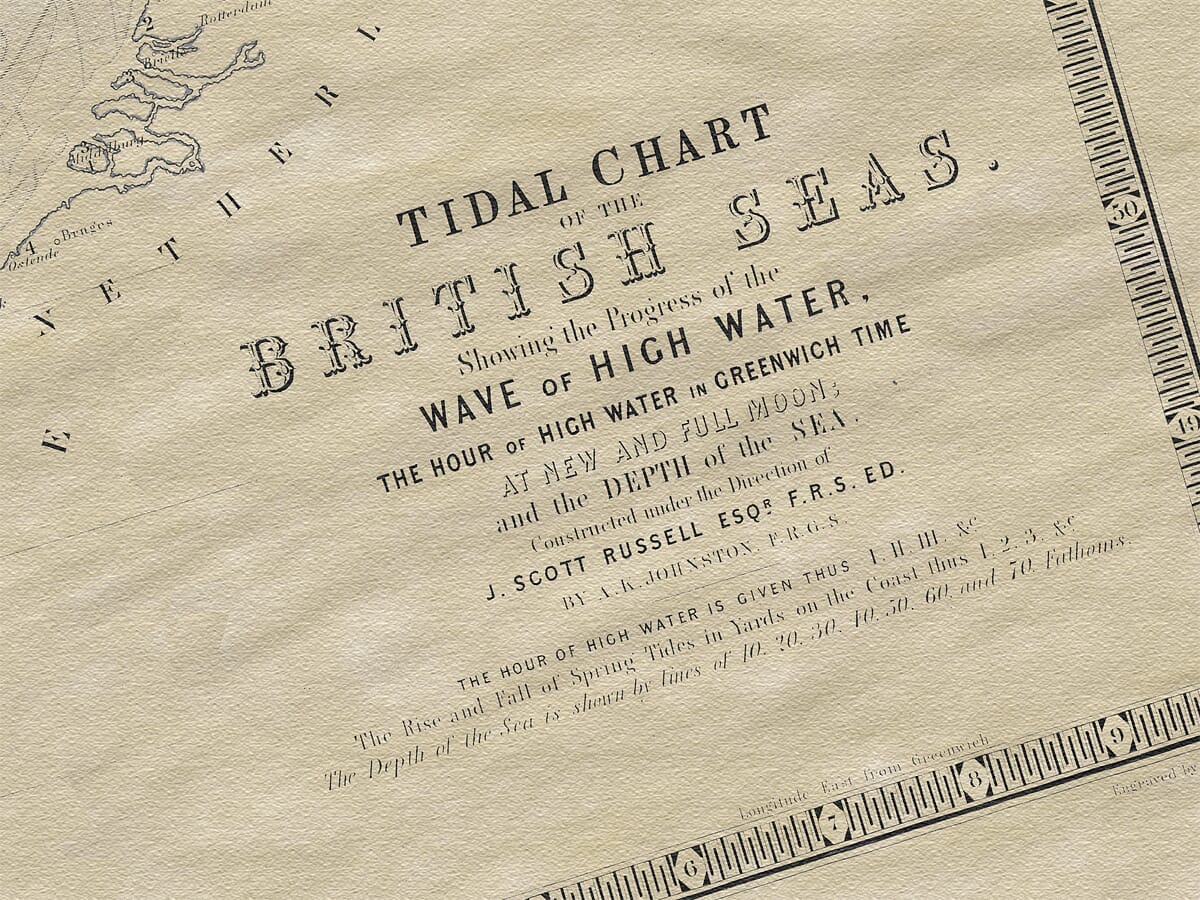 2
Rotterdam
Brielle
3
Middelburg
4
Bruges
Ostende
NETHERL
TIDAL CHART
OF THE
BRITISH SEAS.
Showing the Progress of the
WAVE OF HIGH WATER,
THE HOUR OF HIGH WATER IN GREENWICH TIME
AT NEW AND FULL MOON;
and the DEPTH of the SEA.
Constructed under the Direction of
J. SCOTT RUSSELL ESQR F.R.S. ED.
BY A.K. JOHNSTON, F.R.G.S.
THE HOUR OF HIGH WATER IS GIVEN THUS I. II. III. &c
The Rise and Fall of Spring Tides in Yards on the Coast thus 1. 2. 3. &c
The Depth of the Sea is shown by lines of 10. 20. 30. 40. 50. 60. and 70. Fathoms.
50
49
Longitude East from Greenwich
6 7 8 9
Engraved by